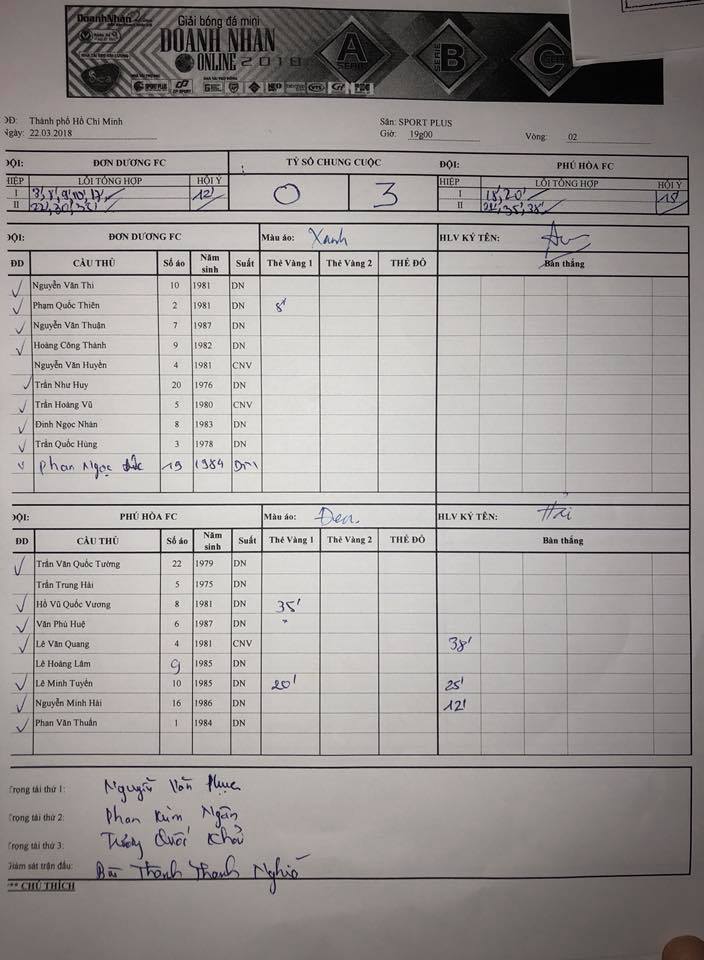 DoanhNhân
Giải bóng đá mini
DOANH NHÂN
ONLINE 2018
SERIE A
SERIE B
SERIE C
Sea
SPORT PLUS
Thành phố Hồ Chí Minh
Sân: SPORT PLUS
Ngày: 22.03.2018
Giờ: 19g00
Vòng: 02
ĐỘI: ĐƠN DƯƠNG FC TỶ SỐ CHUNG CUỘC ĐỘI: PHÚ HÒA FC
HIỆP LỖI TỔNG HỢP HỘI Ý 0 3 HIỆP LỖI TỔNG HỢP HỘI Ý
I 3', 8', 9', 10', 12' 12' I 18', 20' 18'
II 22', 30', 33' II 35', 38'
ĐỘI: ĐƠN DƯƠNG FC Màu áo: Xanh HLV KÝ TÊN:
ĐD CẦU THỦ Số áo Năm sinh Suất Thẻ Vàng 1 Thẻ Vàng 2 THẺ ĐỎ Bàn thắng
Nguyễn Văn Thi 10 1981 DN
Phạm Quốc Thiên 2 1981 DN 8'
Nguyễn Văn Thuận 7 1987 DN
Hoàng Công Thành 9 1982 DN
Nguyễn Văn Huyền 4 1981 CNV
Trần Như Huy 20 1976 DN
Trần Hoàng Vũ 5 1980 CNV
Đinh Ngọc Nhân 8 1983 DN
Trần Quốc Hùng 3 1978 DN
Phan Ngọc 19 1984 DN
ĐỘI: PHÚ HÒA FC Màu áo: Đen HLV KÝ TÊN: Hải
ĐD CẦU THỦ Số áo Năm sinh Suất Thẻ Vàng 1 Thẻ Vàng 2 THẺ ĐỎ Bàn thắng
Trần Văn Quốc Tường 22 1979 DN
Trần Trung Hải 5 1975 DN
Hồ Vũ Quốc Vương 8 1981 DN 35'
Văn Phú Huệ 6 1987 DN
Lê Văn Quang 4 1981 CNV 38'
Lê Hoàng Lâm 9 1985 DN
Lê Minh Tuyển 10 1985 DN 20' 25'
Nguyễn Minh Hải 16 1986 DN 12'
Phan Văn Thuấn 1 1984 DN
Trọng tài thứ 1: Nguyễn Văn
Trọng tài thứ 2: Phan Kim Ngân
Trọng tài thứ 3: Quốc
Giám sát trận đấu: Bùi Thanh Thanh
*** CHÚ THÍCH